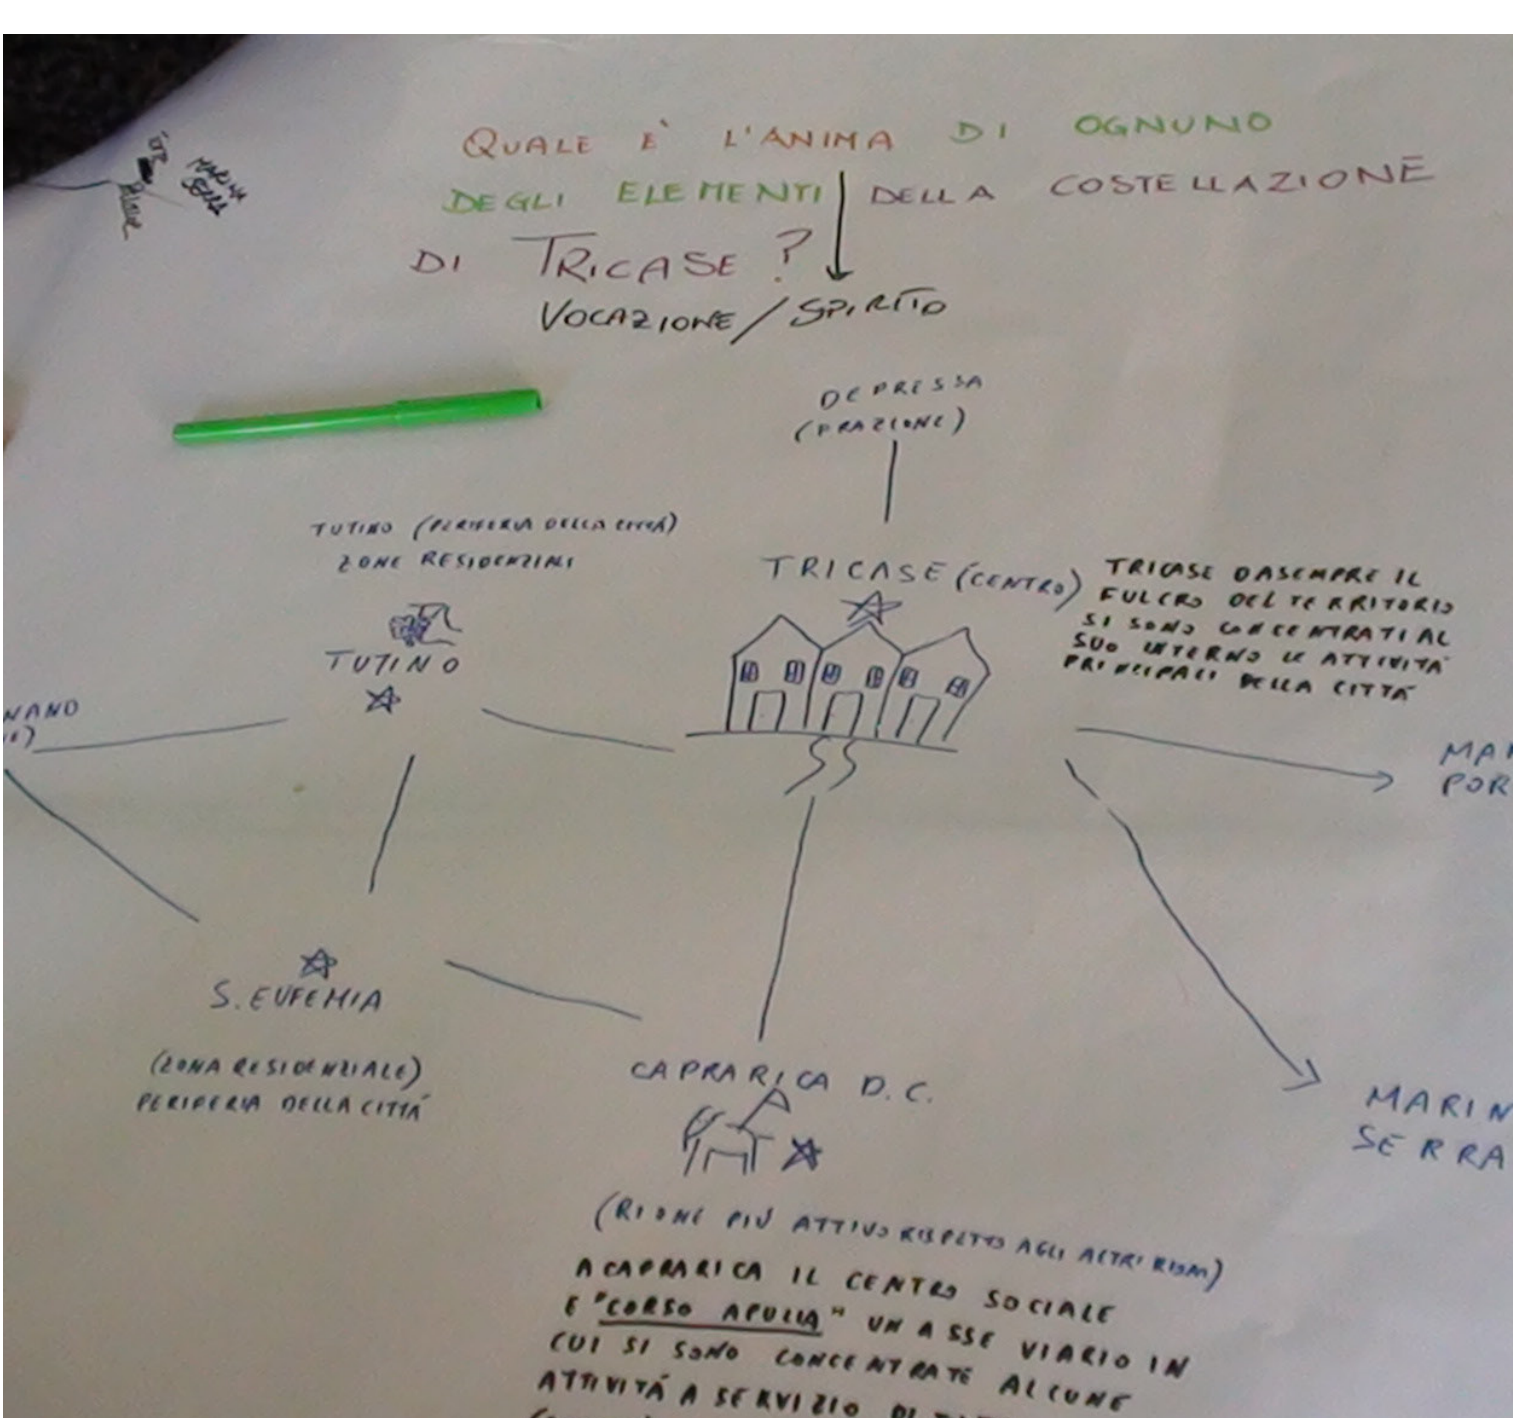 QUALE È L'ANIMA DI OGNUNO
DEGLI ELEMENTI DELLA COSTELLAZIONE
DI TRICASE?
VOCAZIONE/SPIRITO
MARINA
SERRA
DEPRESSA
(FRAZIONE)
TUTINO (PERIFERIA DELLA CITTÁ)
ZONE RESIDENZIALI
TUTINO
TRICASE (CENTRO)
TRICASE DASEMPRE IL
FULCRO DEL TERRITORIO
SI SONO CONCENTRATI AL
SUO INTERNO LE ATTIVITÀ
PRINCIPALI DELLA CITTÀ
NANO
MAR
POR
S. EUFEMIA
(ZONA RESIDENZIALE)
PERIFERIA DELLA CITTÁ
CAPRARICA D.C.
MARIN
SERRA
(RIONE PIÙ ATTIVO RISPETTO AGLI ALTRI RIONI)
A CAPRARICA IL CENTRO SOCIALE
E "CORSO APULIA" UN ASSE VIARIO IN
CUI SI SONO CONCENTRATE ALCUNE
ATTIVITÁ A SERVIZIO DI